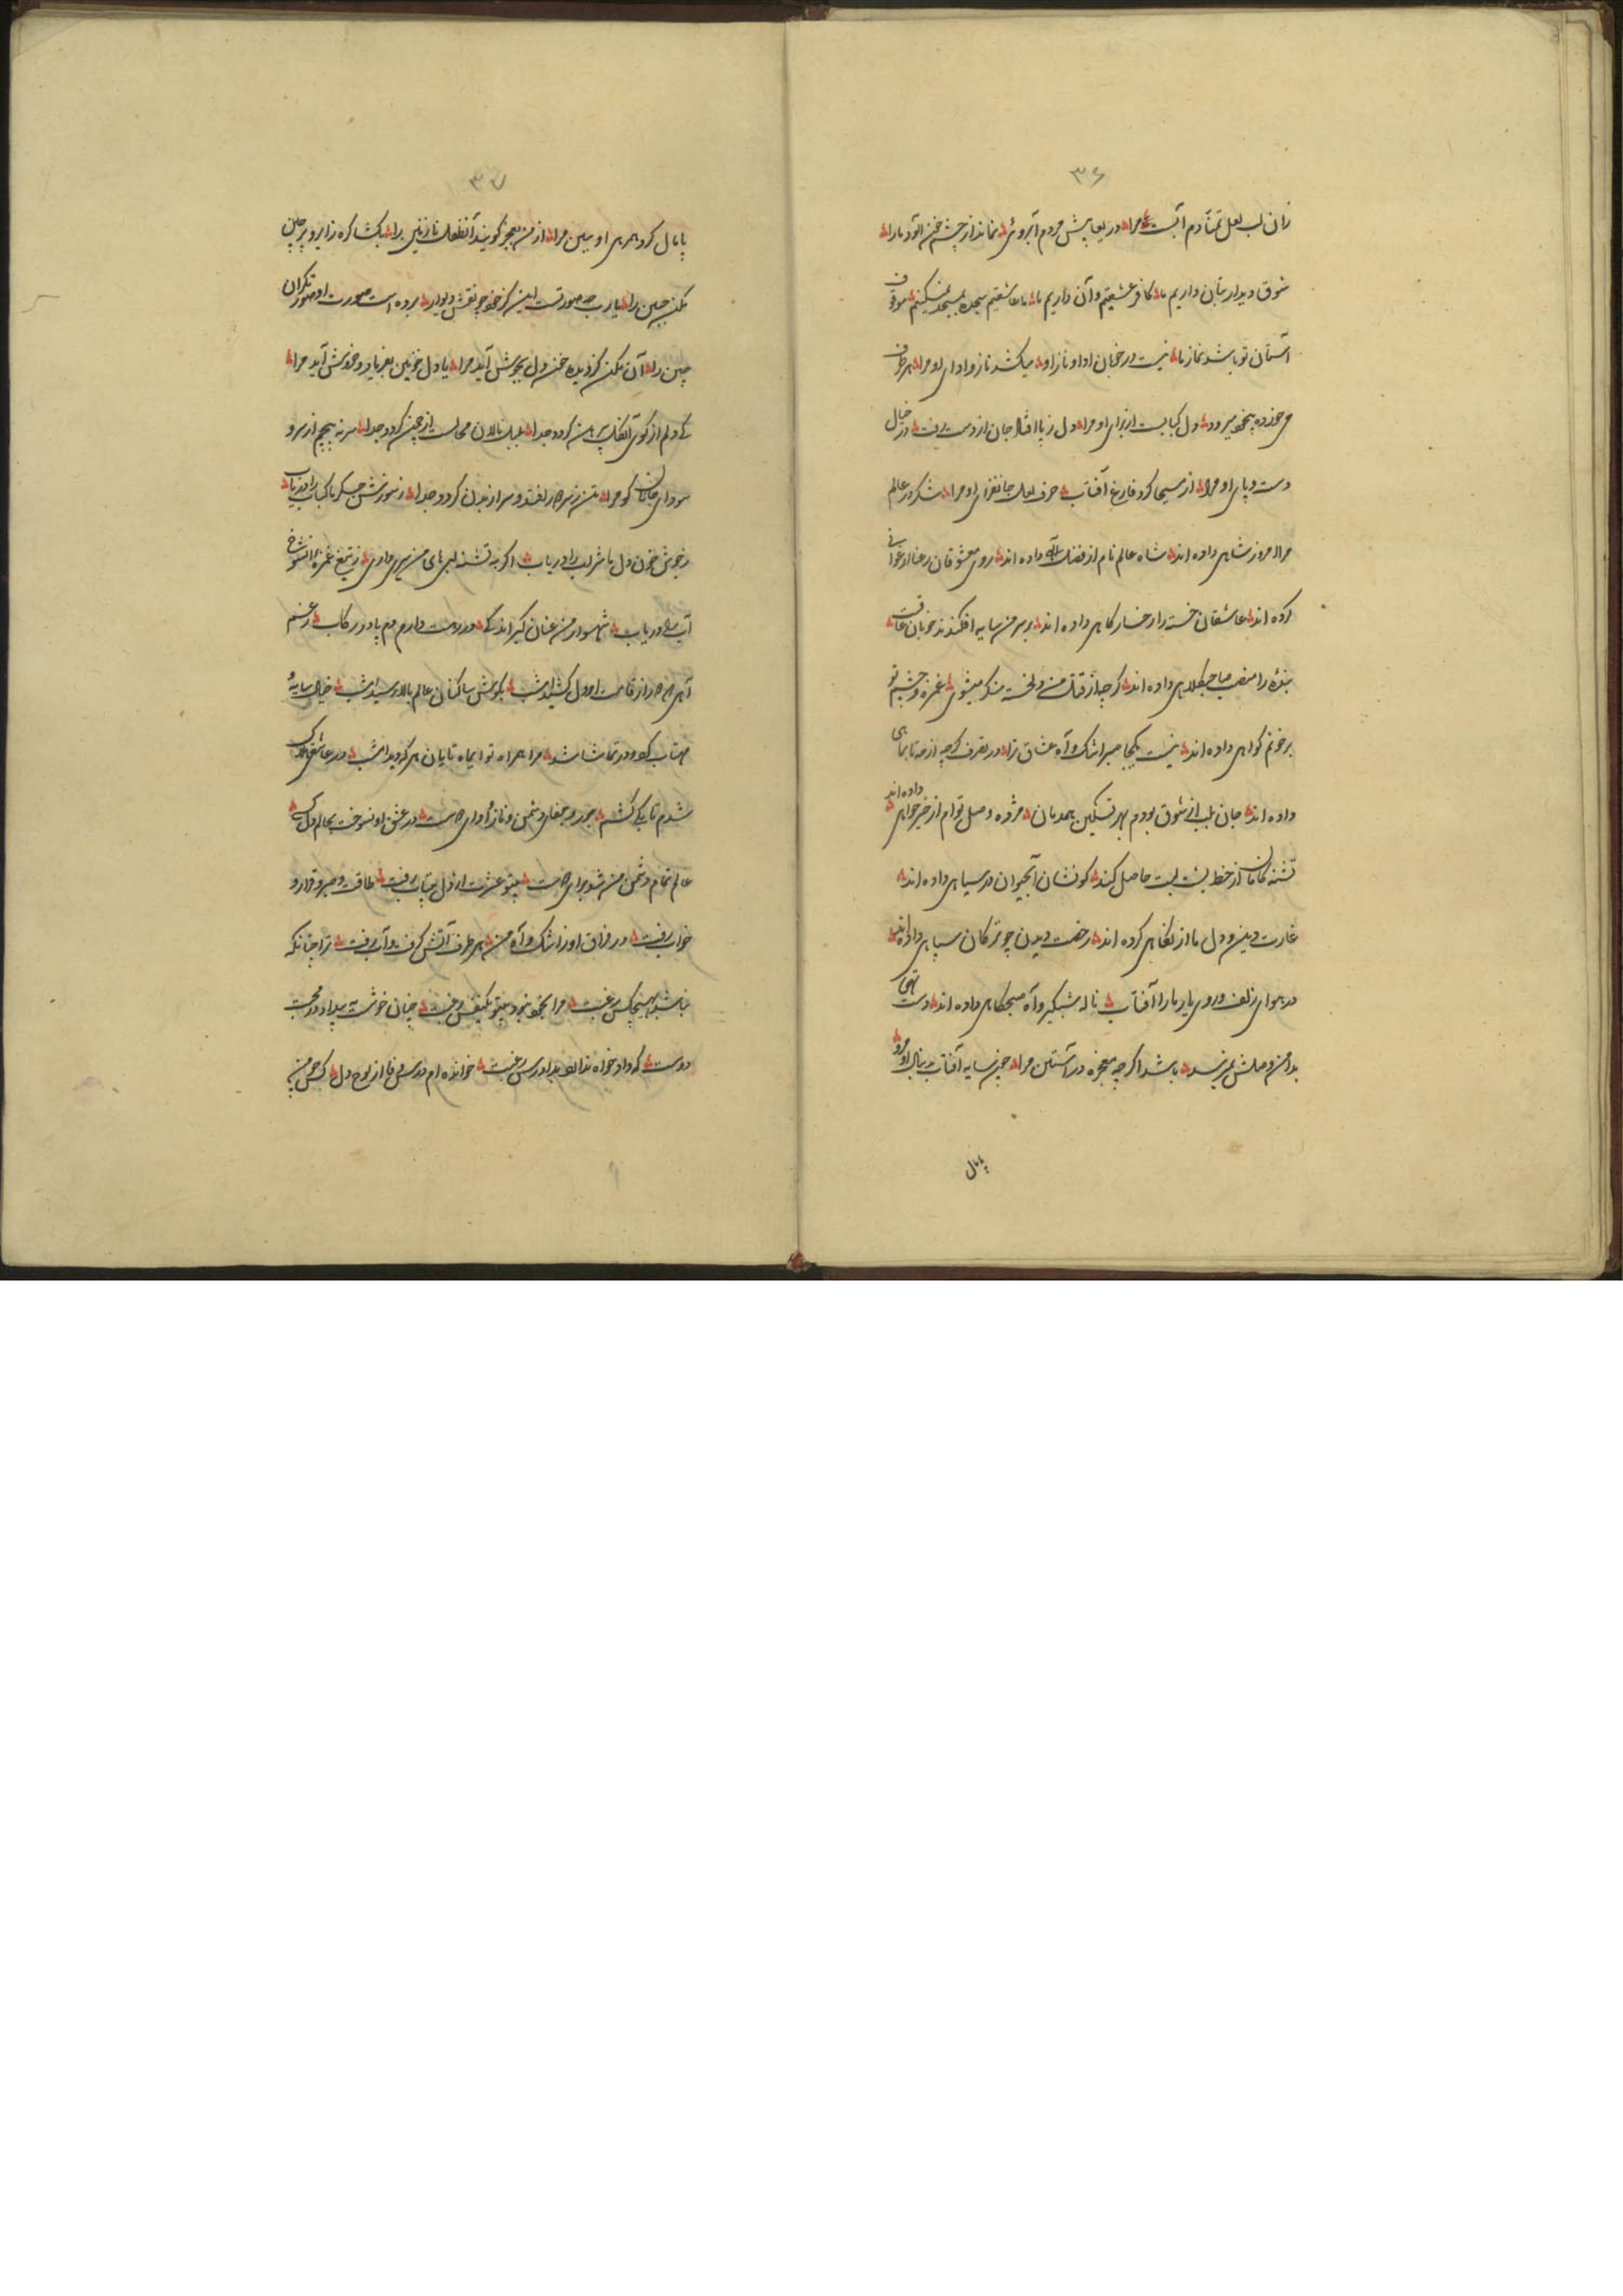 ۳۶
زان لب لعل تمنا دم آبست مرا در یغا پیش مردم آبروئی نماند از چشم خون آلود مارا
شوق دیدار بتان داریم ما کافر عشقیم و آن داریم ما ما عاشقیم سجده بمسجد نمیکنیم موقوف
آستان تو باشد نماز ما نیست در خوبان ادا و ناز او میکشد ناز و ادای او مرا هر طرف
می خورده بیخود میرود دل کبابست از برای او مرا دل ز پا افتاد جان از دست رفت در خیال
دست و پای او مرا از مسیحا کرد فارغ آفتاب حرف لعل جانفزای او مرا شکر در عالم
مرا امروز شاهی داده اند شاه عالم نام از فضل آله داده اند روی معشوقان رعنا ارغوانی
کرده اند عاشقان خسته را رخسار کاهی داده اند بر سر من سایه افکندند خوبان عاقبت
بنده را منصب صاحبکلاهی داده اند گرچه از قتل من دلخسته منکر میشوی غمزه و چشم تو
بر خونم گواهی داده اند نیست یکجا صبر اشک و آه عشاق ترا در تصرف گرچه از مه تا بماهی
داده اند جان بلب از شوق بودم بهر تسکین همدمان مژده وصل توام از خیر خواهی داده اند
تشنه کامان از خط پشت لبت حاصل کنند کو نشان آبحیوان در سیاهی داده اند
غارت دین و دل ما از نگاهی کرده اند رخصت دیدن چو ترکان سپاهی داده اند
در هوای زلف و روی یار ما را آفتاب ناله شبگیر و آه صبحگاهی داده اند دست تهی
بدامن وصلش نمیرسد باشد اگرچه معجزه در آستین مرا چون سایه آفتاب بدنبال او مرو
پامال
۳۷
پامال کرد همرهی او ببین مرا از من بعجز گویند آن طفل نازنین را بکشا گره ز ابرو پر چین
مکن جبین را یارب چه صورتست این کز خود چو نقش دیوار برده است صورت او صورتگران
چین را آن مکن کز دیده خون دل بجوش آید مرا یا دل خونین بفریاد و خروش آید مرا
کی دلم از کوی آن گل پیرهن گردد جدا بلبل نالان محالست از چمن گردد جدا سر نه پیچم از سر و
سودای جانان کو مرا تن ز سر در لغتد و سر از بدن گردد جدا ز سوزش جگر ما کباب را دریاب
ز جوش خون دل ما شراب را دریاب اگر به تشنه لبی های من نمیری وادی ز تیغ غمزه آتش
آب را دریاب شهسوار من عنان گیر اندکی در رهت دارم دم پا در رکاب ز غم
آهی که در از قامت او دل کشید امشب بگوش ساکنان عالم بالا رسید امشب خیال سایهٔ
مهتاب کو در تماشا شد مرا همراه تو ایماه تابان هر که دید امشب در عاشقی هلاک
شدم تا یکی گشتم بجور و جفای دشمن و ناز و ادای دوست در عشق او نسوخت بحالم دل کسی
عالم تمام دشمن من شد برای دوست بیتو عشرت از دل بیتاب رفت طاقت و صبر و قرار و
خواب رفت در فراق او ز اشک و آه من هر طرف آتش گرفت و آب رفت ترا چنانکه
نباشد بهیچکس رغبت مرا بخود نبود بیتو یکنفس رغبت چنان خوشست بیداد در محبت
دوست که داد خواه ندارد بدادرس رغبت خوانده ام درس وفا از لوح دل گر چه من